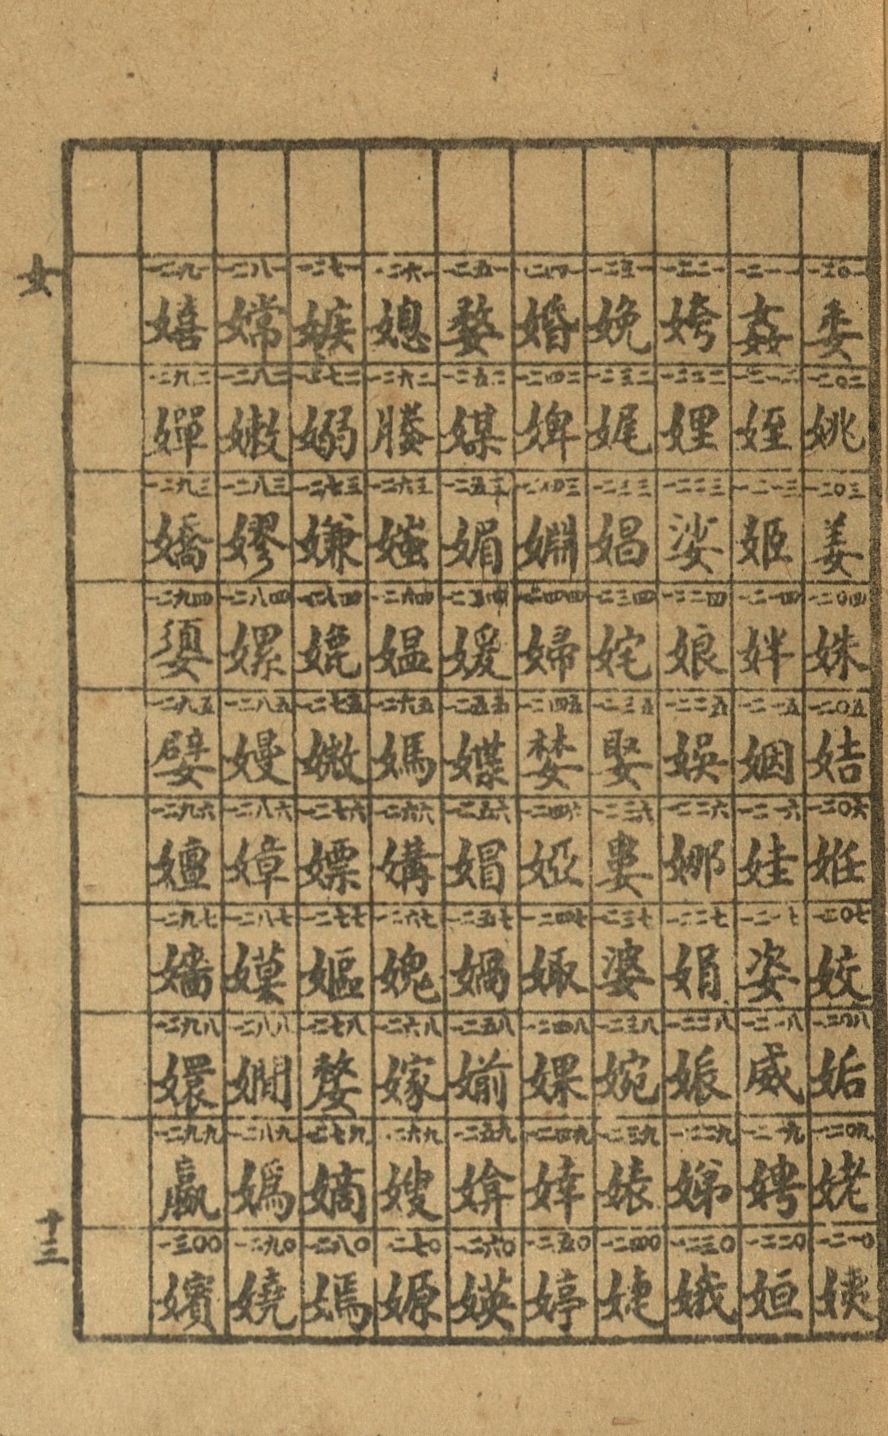 女
一二〇一 委 一二〇二 姚 一二〇三 姜 一二〇四 姝 一二〇五 姞 一二〇六 姙 一二〇七 姣 一二〇八 姤 一二〇九 姥 一二一〇 姨
一二一一 姦 一二一二 姪 一二一三 姬 一二一四 姘 一二一五 姻 一二一六 娃 一二一七 姿 一二一八 威 一二一九 娉 一二二〇 姮
一二二一 姱 一二二二 娌 一二二三 娑 一二二四 娘 一二二五 娛 一二二六 娜 一二二七 娟 一二二八 娠 一二二九 娣 一二三〇 娥
一二三一 娩 一二三二 娓 一二三三 娼 一二三四 姹 一二三五 娶 一二三六 婁 一二三七 婆 一二三八 婉 一二三九 婊 一二四〇 婕
一二四一 婚 一二四二 婢 一二四三 婣 一二四四 婦 一二四五 婪 一二四六 婭 一二四七 娵 一二四八 婐 一二四九 婞 一二五〇 婷
一二五一 婺 一二五二 媒 一二五三 媚 一二五四 媛 一二五五 媟 一二五六 媢 一二五七 媧 一二五八 媊 一二五九 媕 一二六〇 媖
一二六一 媳 一二六二 媵 一二六三 媸 一二六四 媼 一二六五 媽 一二六六 媾 一二六七 媿 一二六八 嫁 一二六九 嫂 一二七〇 嫄
一二七一 嫉 一二七二 嫋 一二七三 嫌 一二七四 媲 一二七五 媺 一二七六 嫖 一二七七 嫗 一二七八 嫠 一二七九 嫡 一二八〇 嫣
一二八一 嫦 一二八二 嫩 一二八三 嫪 一二八四 嫘 一二八五 嫚 一二八六 嫜 一二八七 嫫 一二八八 嫺 一二八九 嬀 一二九〇 嬈
一二九一 嬉 一二九二 嬋 一二九三 嬌 一二九四 嬃 一二九五 嬖 一二九六 嬗 一二九七 嬙 一二九八 嬛 一二九九 嬴 一三〇〇 嬪
十三